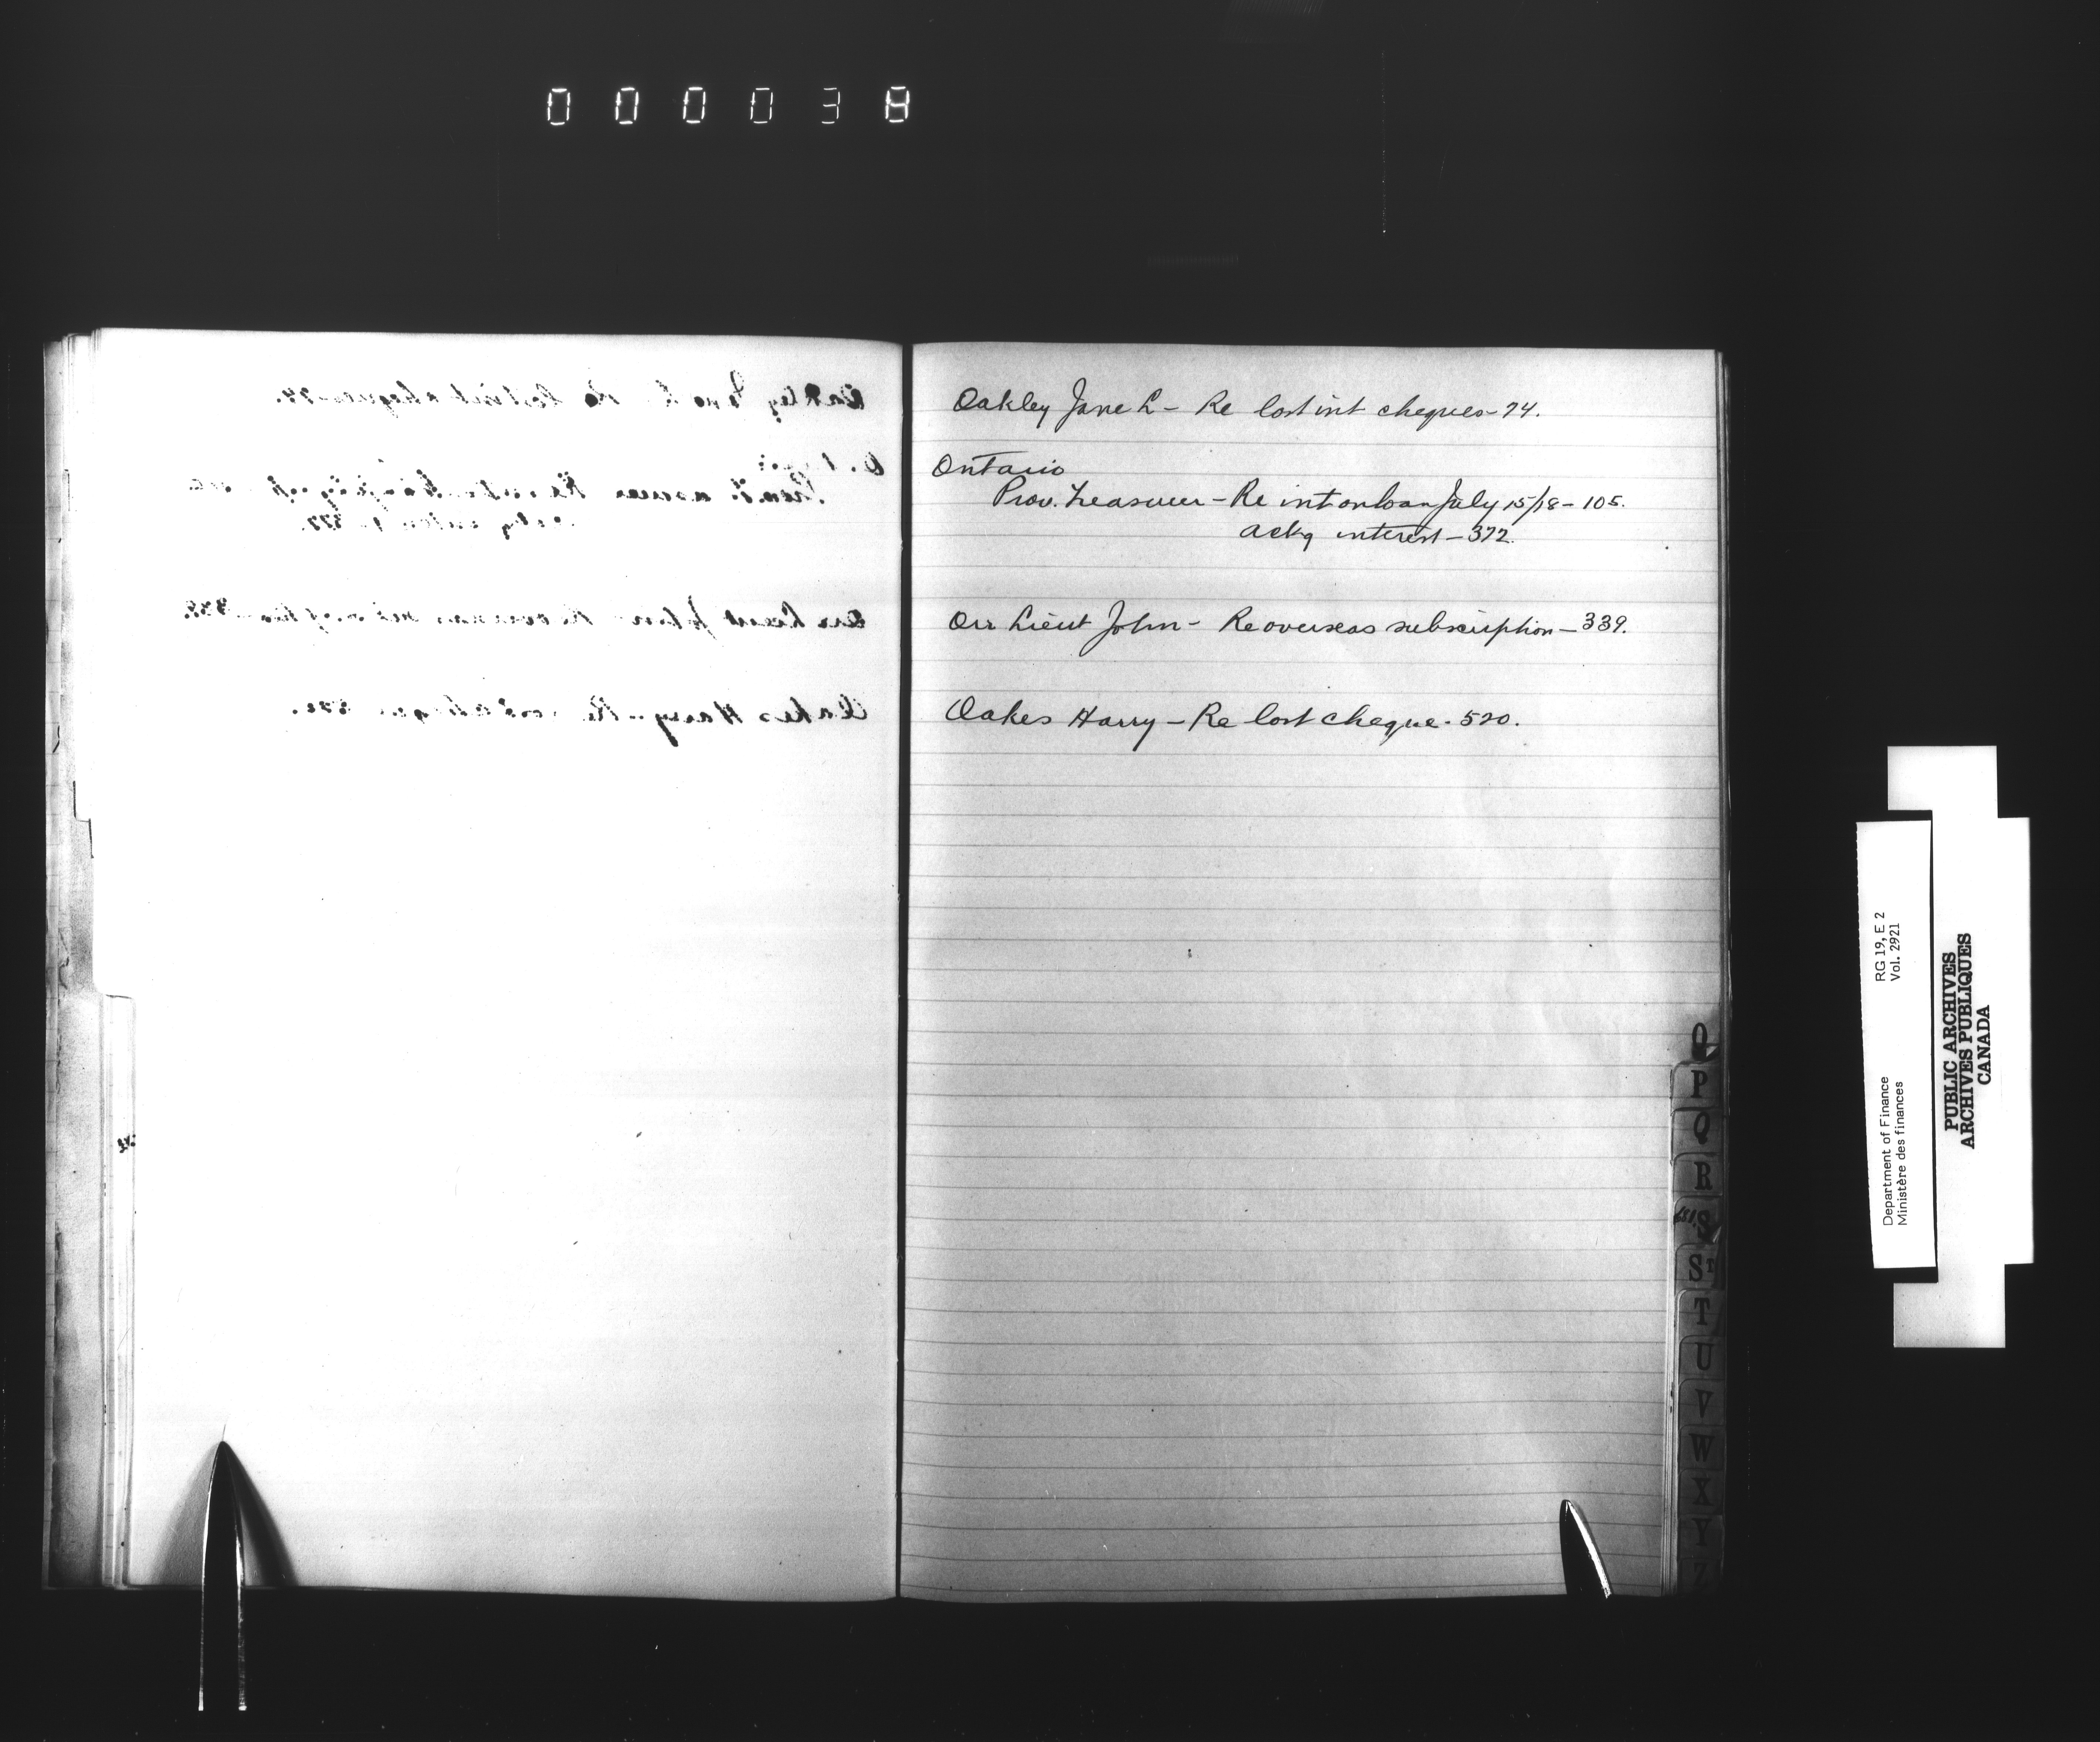 000038
Oakley Jane L - Re lost int cheques - 74.
Ontario
Prov. Treasurer - Re int on loan July 15/18 - 105.
ackg interest - 372.
Orr Lieut John - Re overseas subscription - 339.
Oakes Harry - Re lost cheque - 520.
O
P
Q
R
S
ST
T
U
V
W
X
Y
Z
Department of Finance RG 19, E 2
Ministère des finances Vol. 2921
PUBLIC ARCHIVES
ARCHIVES PUBLIQUES
CANADA